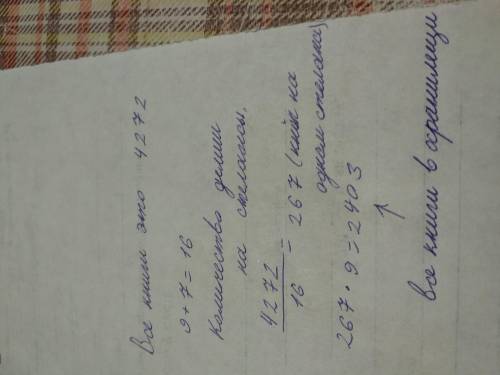 Все книги это 4272
9 + 7 = 16
Количество делим
на стелажом.
4272
16
= 267 (книг на
одном стелаже)
267 · 9 = 2403
↑
все книги в хранилище